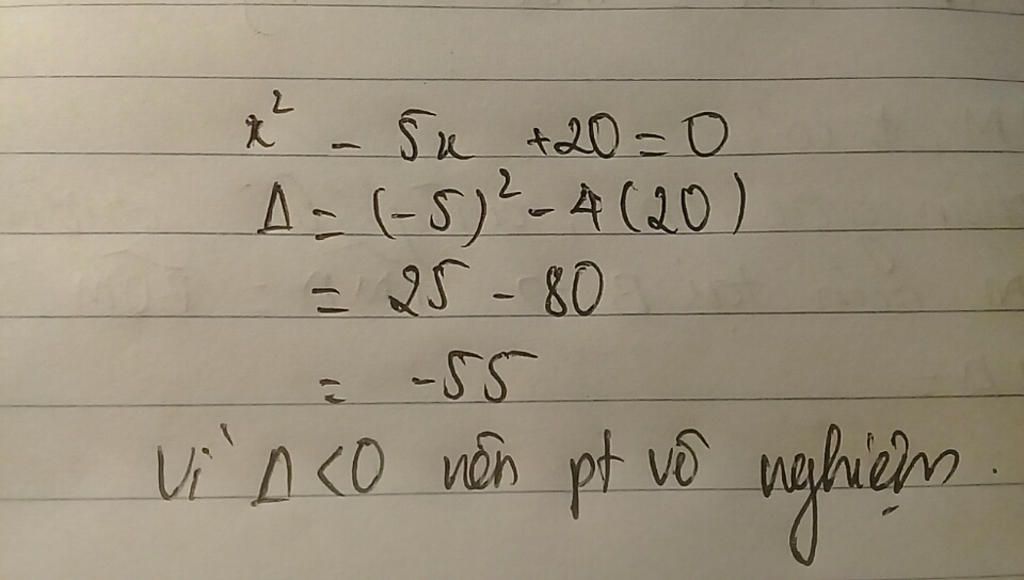 x² - 5x + 20 = 0
Δ = (-5)² - 4(20)
= 25 - 80
= -55
Vì Δ < 0 nên pt vô nghiệm.